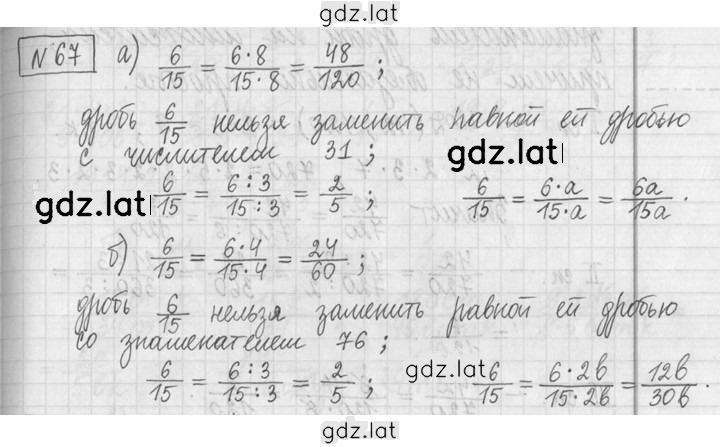 gdz.lat
N 67 а) 6/15 = 6·8/15·8 = 48/120 ;
дробь 6/15 нельзя заменить равной ей дробью
с числителем 31 ; gdz.lat
gdz.lat 6/15 = 6:3/15:3 = 2/5 ; 6/15 = 6·a/15·a = 6a/15a .
б) 6/15 = 6·4/15·4 = 24/60 ;
дробь 6/15 нельзя заменить равной ей дробью
со знаменателем 76 ;
6/15 = 6:3/15:3 = 2/5 ; gdz.lat 6/15 = 6·2b/15·2b = 12b/30b .
gdz.lat